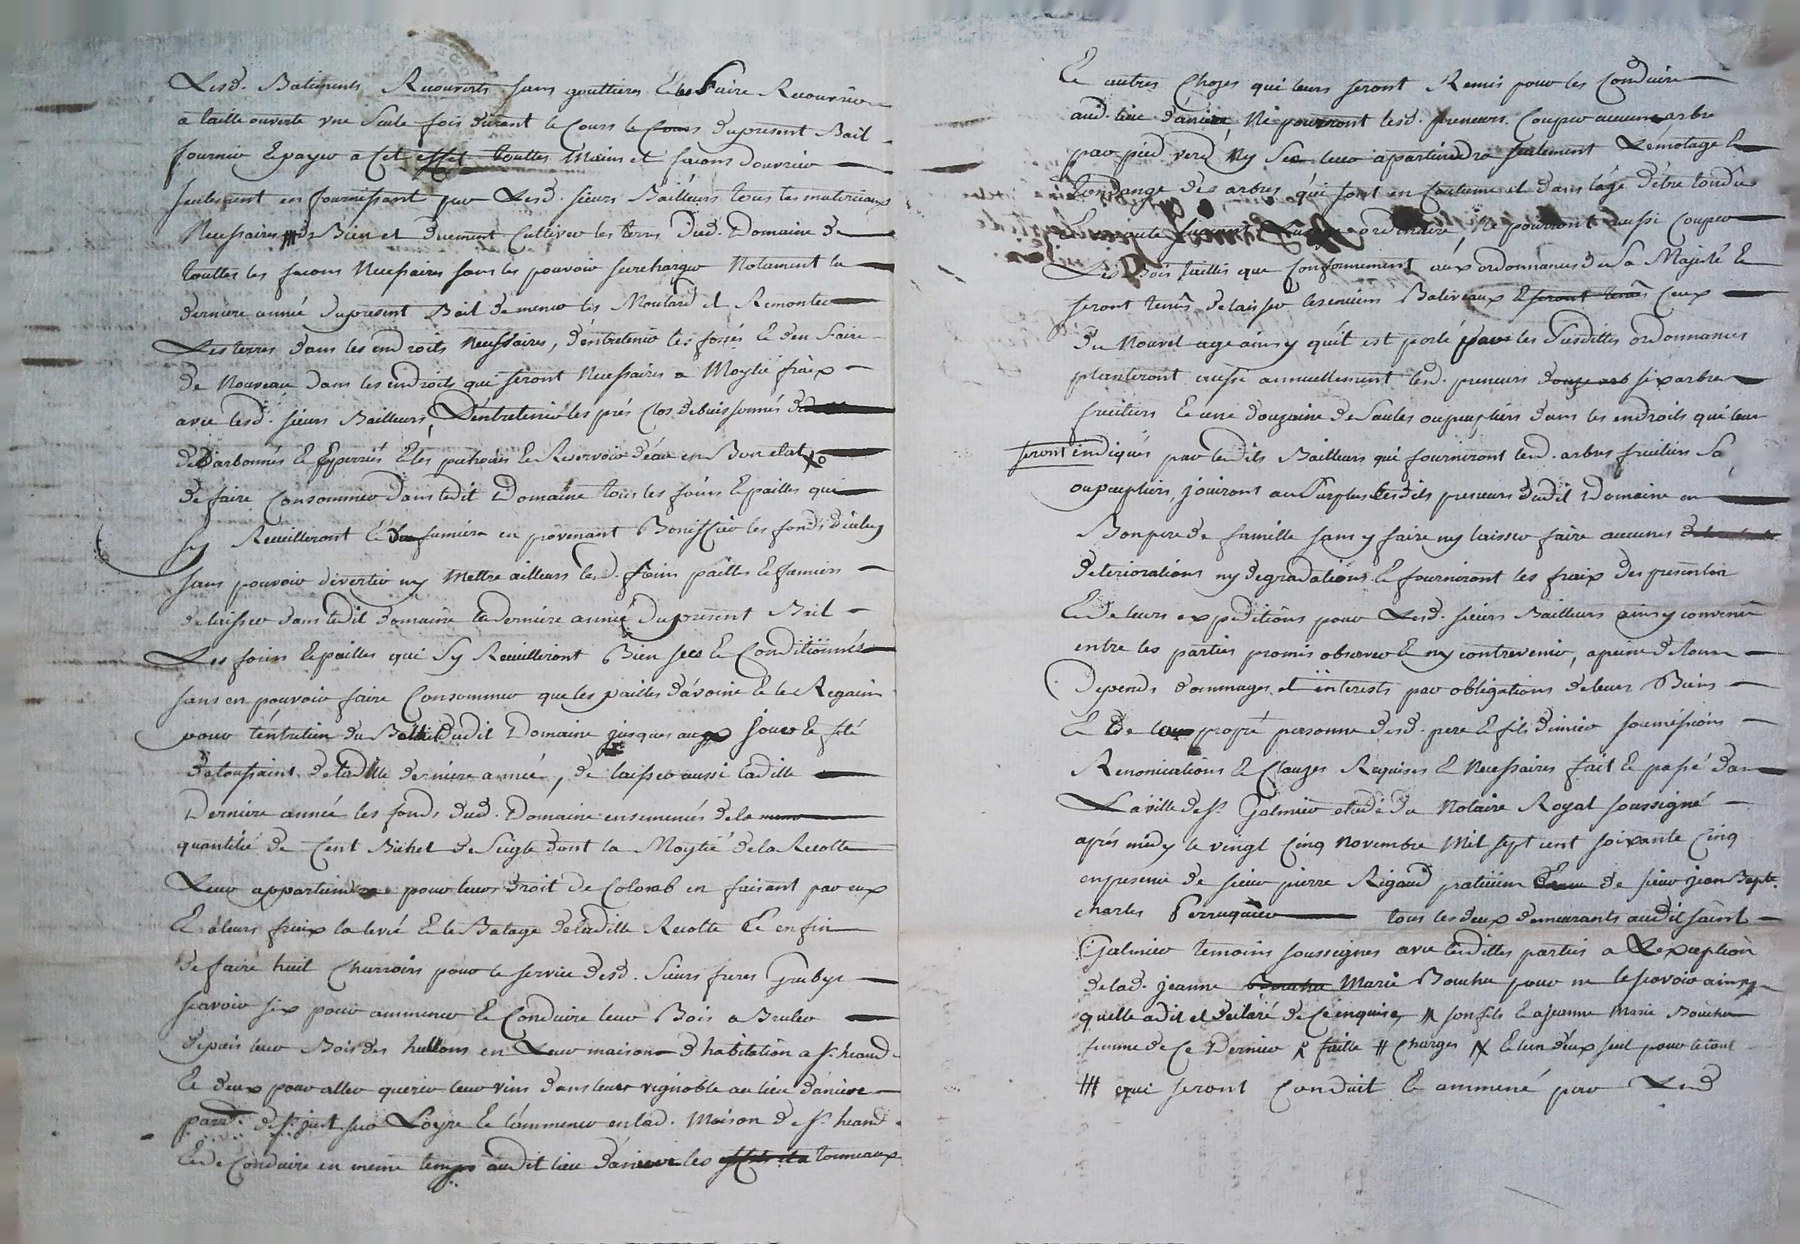 Lesd. Batiments Recouverts sans gouttieres Et les Faire Recouvrir
a taille ouverte une Seule fois durant le Cours le Cours du present Bail
fournir Et payer a Cet effet touttes Mains et facons douvrier
seulement en fournissant par Lesd. sieurs Bailleurs tous les materiaux
Necessaires # de Bien et duement Cultiver les terres Dud. Domaine de
touttes les facons Necessaires sans les pouvoir surcharger Notament la
derniere année dupresent Bail de mener les Moutard et Remonter
Les terres dans les endroits Necessaires, d'entretenir les fossés Et d'en faire
de Nouveau dans les endroits qui seront Necessaires a Moytié fraix
avec lesd. sieurs Bailleurs, D'entretenir les prés Clos debuissonnés
de Darbonnés Et Epierrés Et les pecheries Et Reservoirs d'eau en Bon etat
de faire Consommer dans ledit Domaine tous les foins Et pailles qui
sy Reuilleront Et du fumier en provenant Boniffier les fonds d'icelluy
sans pouvoir divertir ny Mettre ailleurs lesd. foins pailles Et fumiers
de laisser dans ledit domaine la derniere année Dupresent Bail
Les foins Et pailles qui Sy Reuilleront Bien secs Et Conditionnés
sans en pouvoir faire Consommer que les pailles d'avoine Et le Regain
pour l'entretien du Bettail dudit Domaine jusques aux jour Et fete
de toussaint de ladite derniere année, de laisser aussi ladite
Derniere année les fonds dud. Domaine ensemencés de la
quantité de Cent Bichet de Seigle dont la Moytié de la Recolte
Leur appartiendra pour leurs droit de Colonb en faisant par eux
Et a leurs fraix la levée Et le Batage de ladite Recolte Et enfin
de faire huit Charrois pour le service desd. Sieurs freres Grubys
scavoir six pour ammener Et Conduire leur Bois a Bruler
depuis leur Bois des hullons en Leur maison d'habitation a St. heand
Et deux pour aller querir leur vin dans leur vignoble au lieu d'aniere
parr. de St. just sur Loyre Et l'ammener en lad. Maison de St. heand
Et de Conduire en meme temps audit lieu d'aniere les tonneaux
Et autres Choses qui leurs seront Remis pour les Conduire
aud. lieu d'aniere, Ne pourront lesd. preneurs Couper aucun arbre
par pied verd, Ny Sec leur apartiendra seulement L'emotage Et
tondange des arbres qui sont en Coutume et dans l'age d'être tondus
ordinaire, Ne pourront aussi Couper
Les Bois taillis que Conformement aux ordonnances de Sa Majesté Et
seront tenus de laisser les anciens Baliveaux Et seront tenus Ceux
du Nouvel age ainsy qu'il est porté par les Susdittes ordonnances
planteront aussi annuellement lesd. preneurs douze arb six arbres
fruitiers Et une douzaine de Saules ou peupliers dans les endroits qui leur
seront indiqués par lesdits Bailleurs qui fourniront lesd. arbres fruitiers Sa
ou peupliers, jouiront au Surplus lesdits preneurs dudit Domaine en
Bon pere de famille sans y faire ny laisser faire aucunes
deteriorations ny degradations Et fourniront les fraix des presentes
Et de leurs expeditions pour Lesd. sieurs Bailleurs ainsy convenu
entre les parties promis observer Et ny contrevenir, a peine de tous
Depends dommages et interests par obligations de leurs Biens
Et de leur propre personne desd. pere Et fils d'iniere soumissions
Renonciations Et Clauzes Requises Et Necessaires fait Et passé dans
La ville de St. Galmier etude du Notaire Royal soussigné
aprés midy le vingt Cinq Novembre Mil sept cent soixante Cinq
en presence de sieur pierre Rigaud praticien de sieur jean Bapte.
charles Perruquier tous les deux demeurants audit saint
Galmier temoins soussignes avec lesdittes parties a L'exception
de lad. jeanne Bouchu Marie Bouchu pour ne le scavoir ainsy
quelle a dit et declaré de Ce enquise, # son fils Et a jeanne Marie Bouchu
femme de Ce Dernier x faitte # Charges # Et l'un d'eux seul pour le tout
# qui seront Conduit Et ammené par Lesd